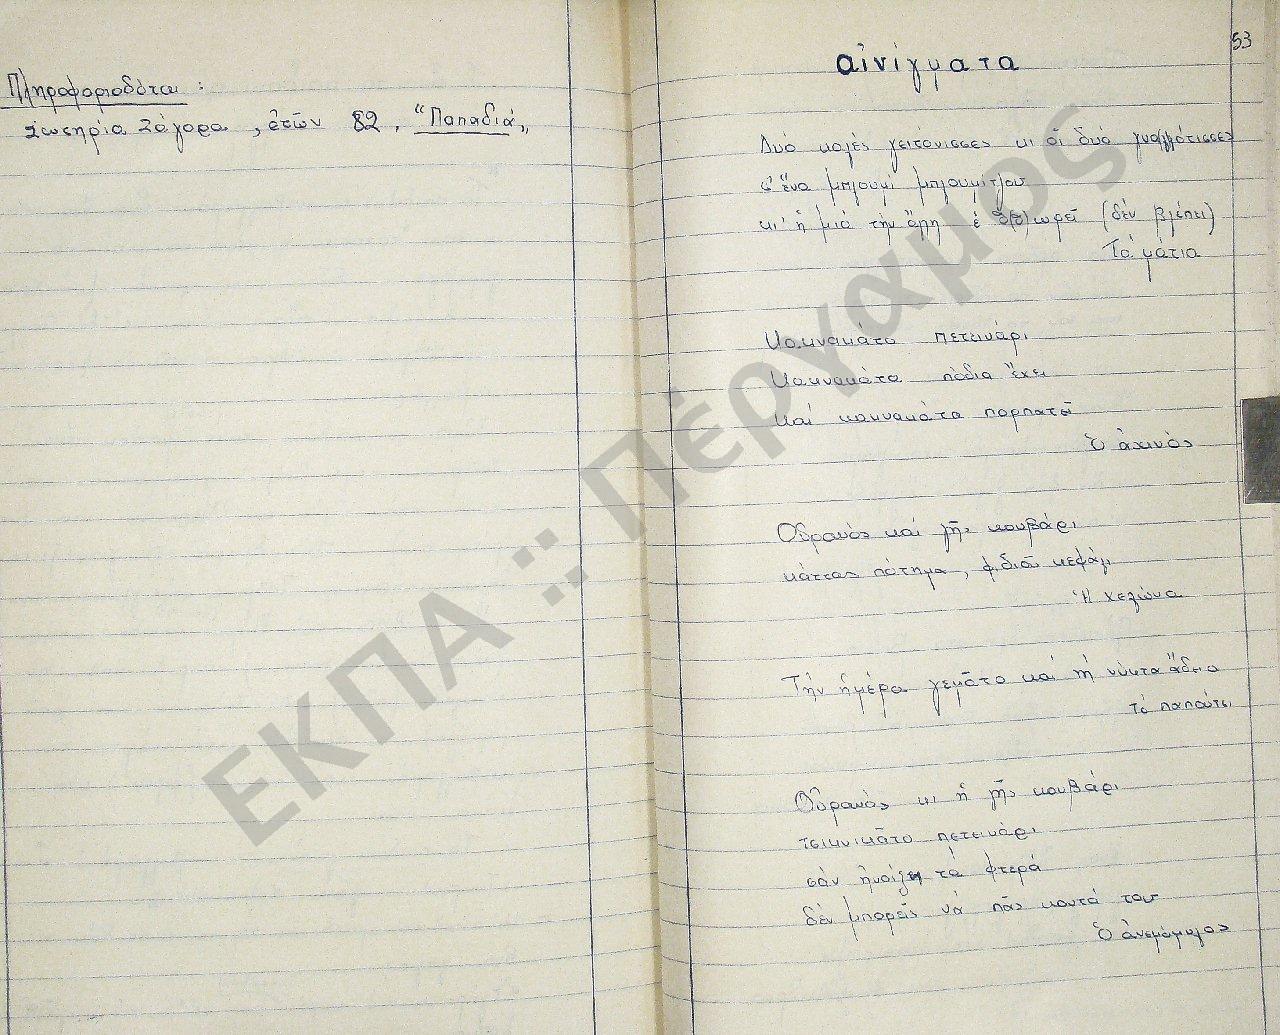 Πληροφοριοδόται :
Σωτηρία Ζάγορα , ἐτῶν 82 , "Παπαδιά„
53
αἰνίγματα
Δυό καλές γειτόνισσες κι οἱ δυό γυαλλάτισσες
σ' ἕνα μπλουμί μπλουμίτλου
κι' ἡ μιά τήν ἄλλη ἐ θ(θ)ωρεῖ (δέν βλέπει)
Τά μάτια
Κακνακάτο πετεινάρι
Κακνακάτα πόδια ἔχει
Καί κακνακάτα παρπατεῖ
Ὁ ἀχινός
Οὐρανός καί γῆς κουβάρι
κάττας πάτημα , φιδιοῦ κεφάλι
Ἡ χελώνα
Τήν ἡμέρα γεμάτο καί τή νύκτα ἄδειο
τό παπούτσι
Οὐρανός κι ἡ γῆς κουβάρι
τσικνικᾶτο πετεινάρι
σάν ἠνοίξῃ τά φτερά
δέν μπορεῖς νά πᾶς κοντά του
Ὁ ἀνεμόμυλος
ΕΚΠΑ :: Πέργαμος